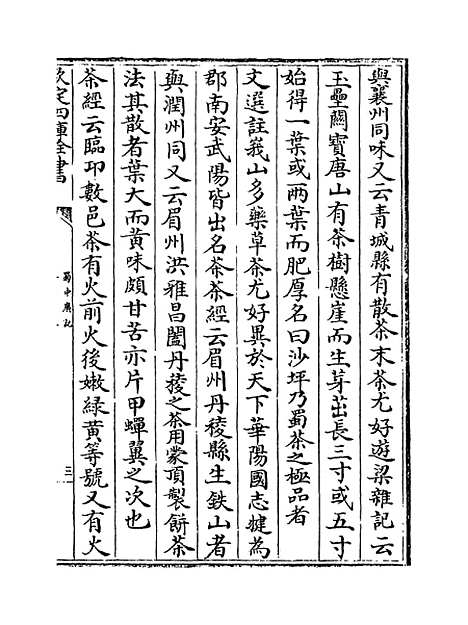 與襄州同味又云青城縣有散茶末茶尤好遊梁雜記云
玉壘關寶唐山有茶樹懸崖而生芽茁長三寸或五寸
始得一葉或兩葉而肥厚名曰沙坪乃蜀茶之極品者
文選註峩山多藥草茶尤好異於天下華陽國志犍為
郡南安武陽皆出名茶茶經云眉州丹稜縣生鉄山者
與潤州同又云眉州洪雅昌闔丹稜之茶用蒙頂製餅茶
法其散者葉大而黃味頗甘苦亦片甲蟬翼之次也
茶經云臨邛數邑茶有火前火後嫩綠黃等號又有火
欽定四庫全書
蜀中廣記
三